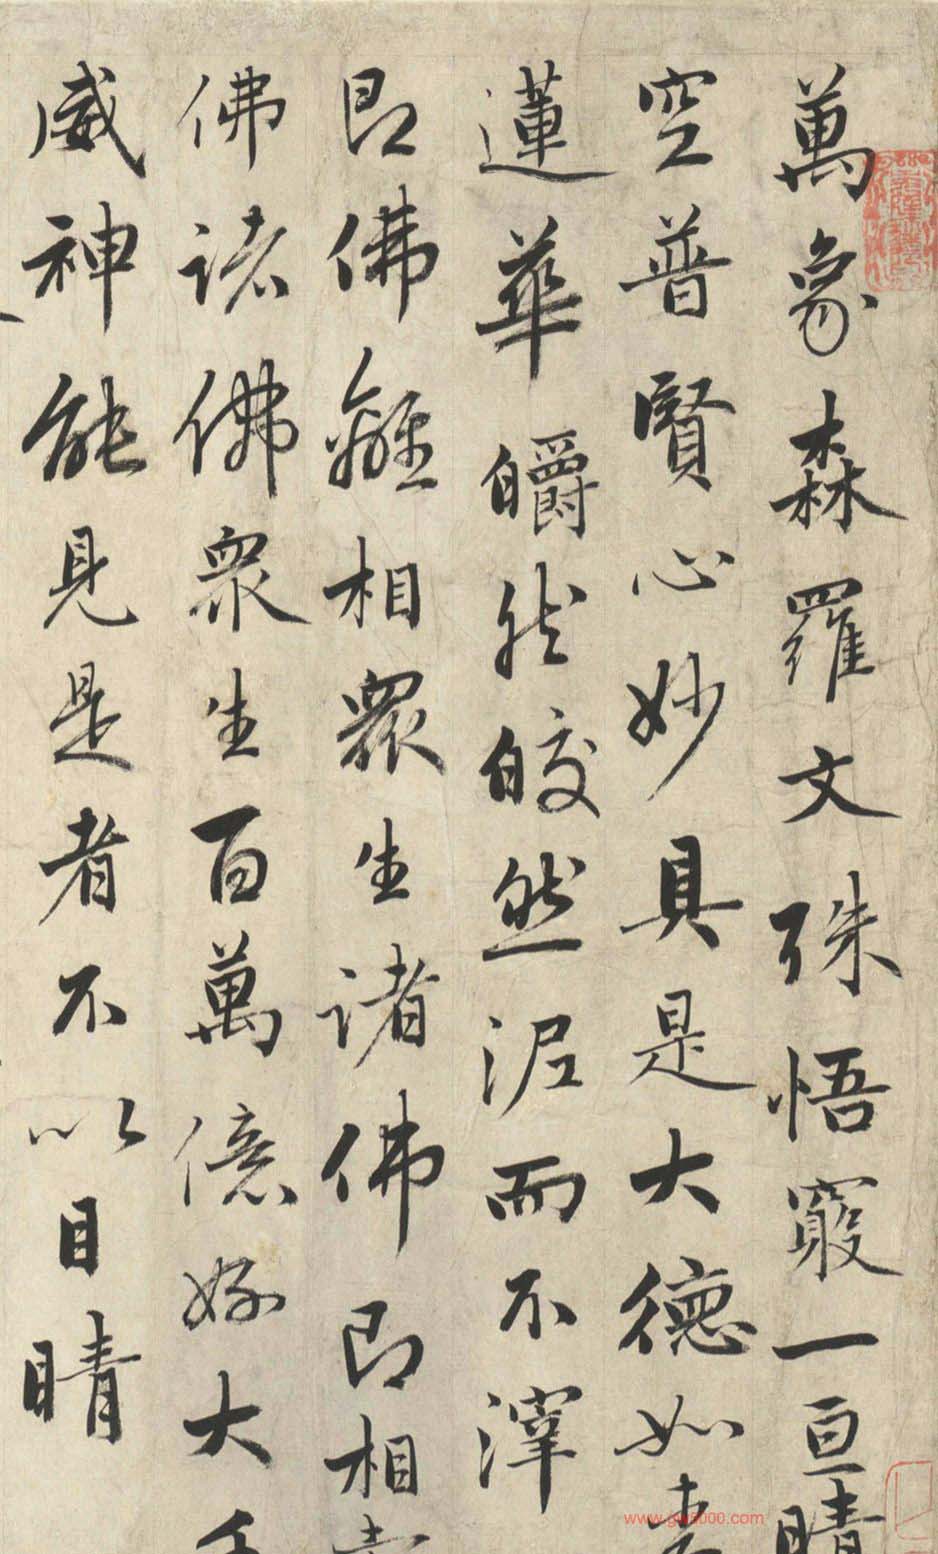 萬象森羅文殊悟窽一亘晴
空普賢心妙具是大德如青
蓮華皭然皎然泥而不滓
即佛離相眾生諸佛即相
佛諸佛眾生百萬億好大
威神能見是者不以目睛
www.gw5000.com